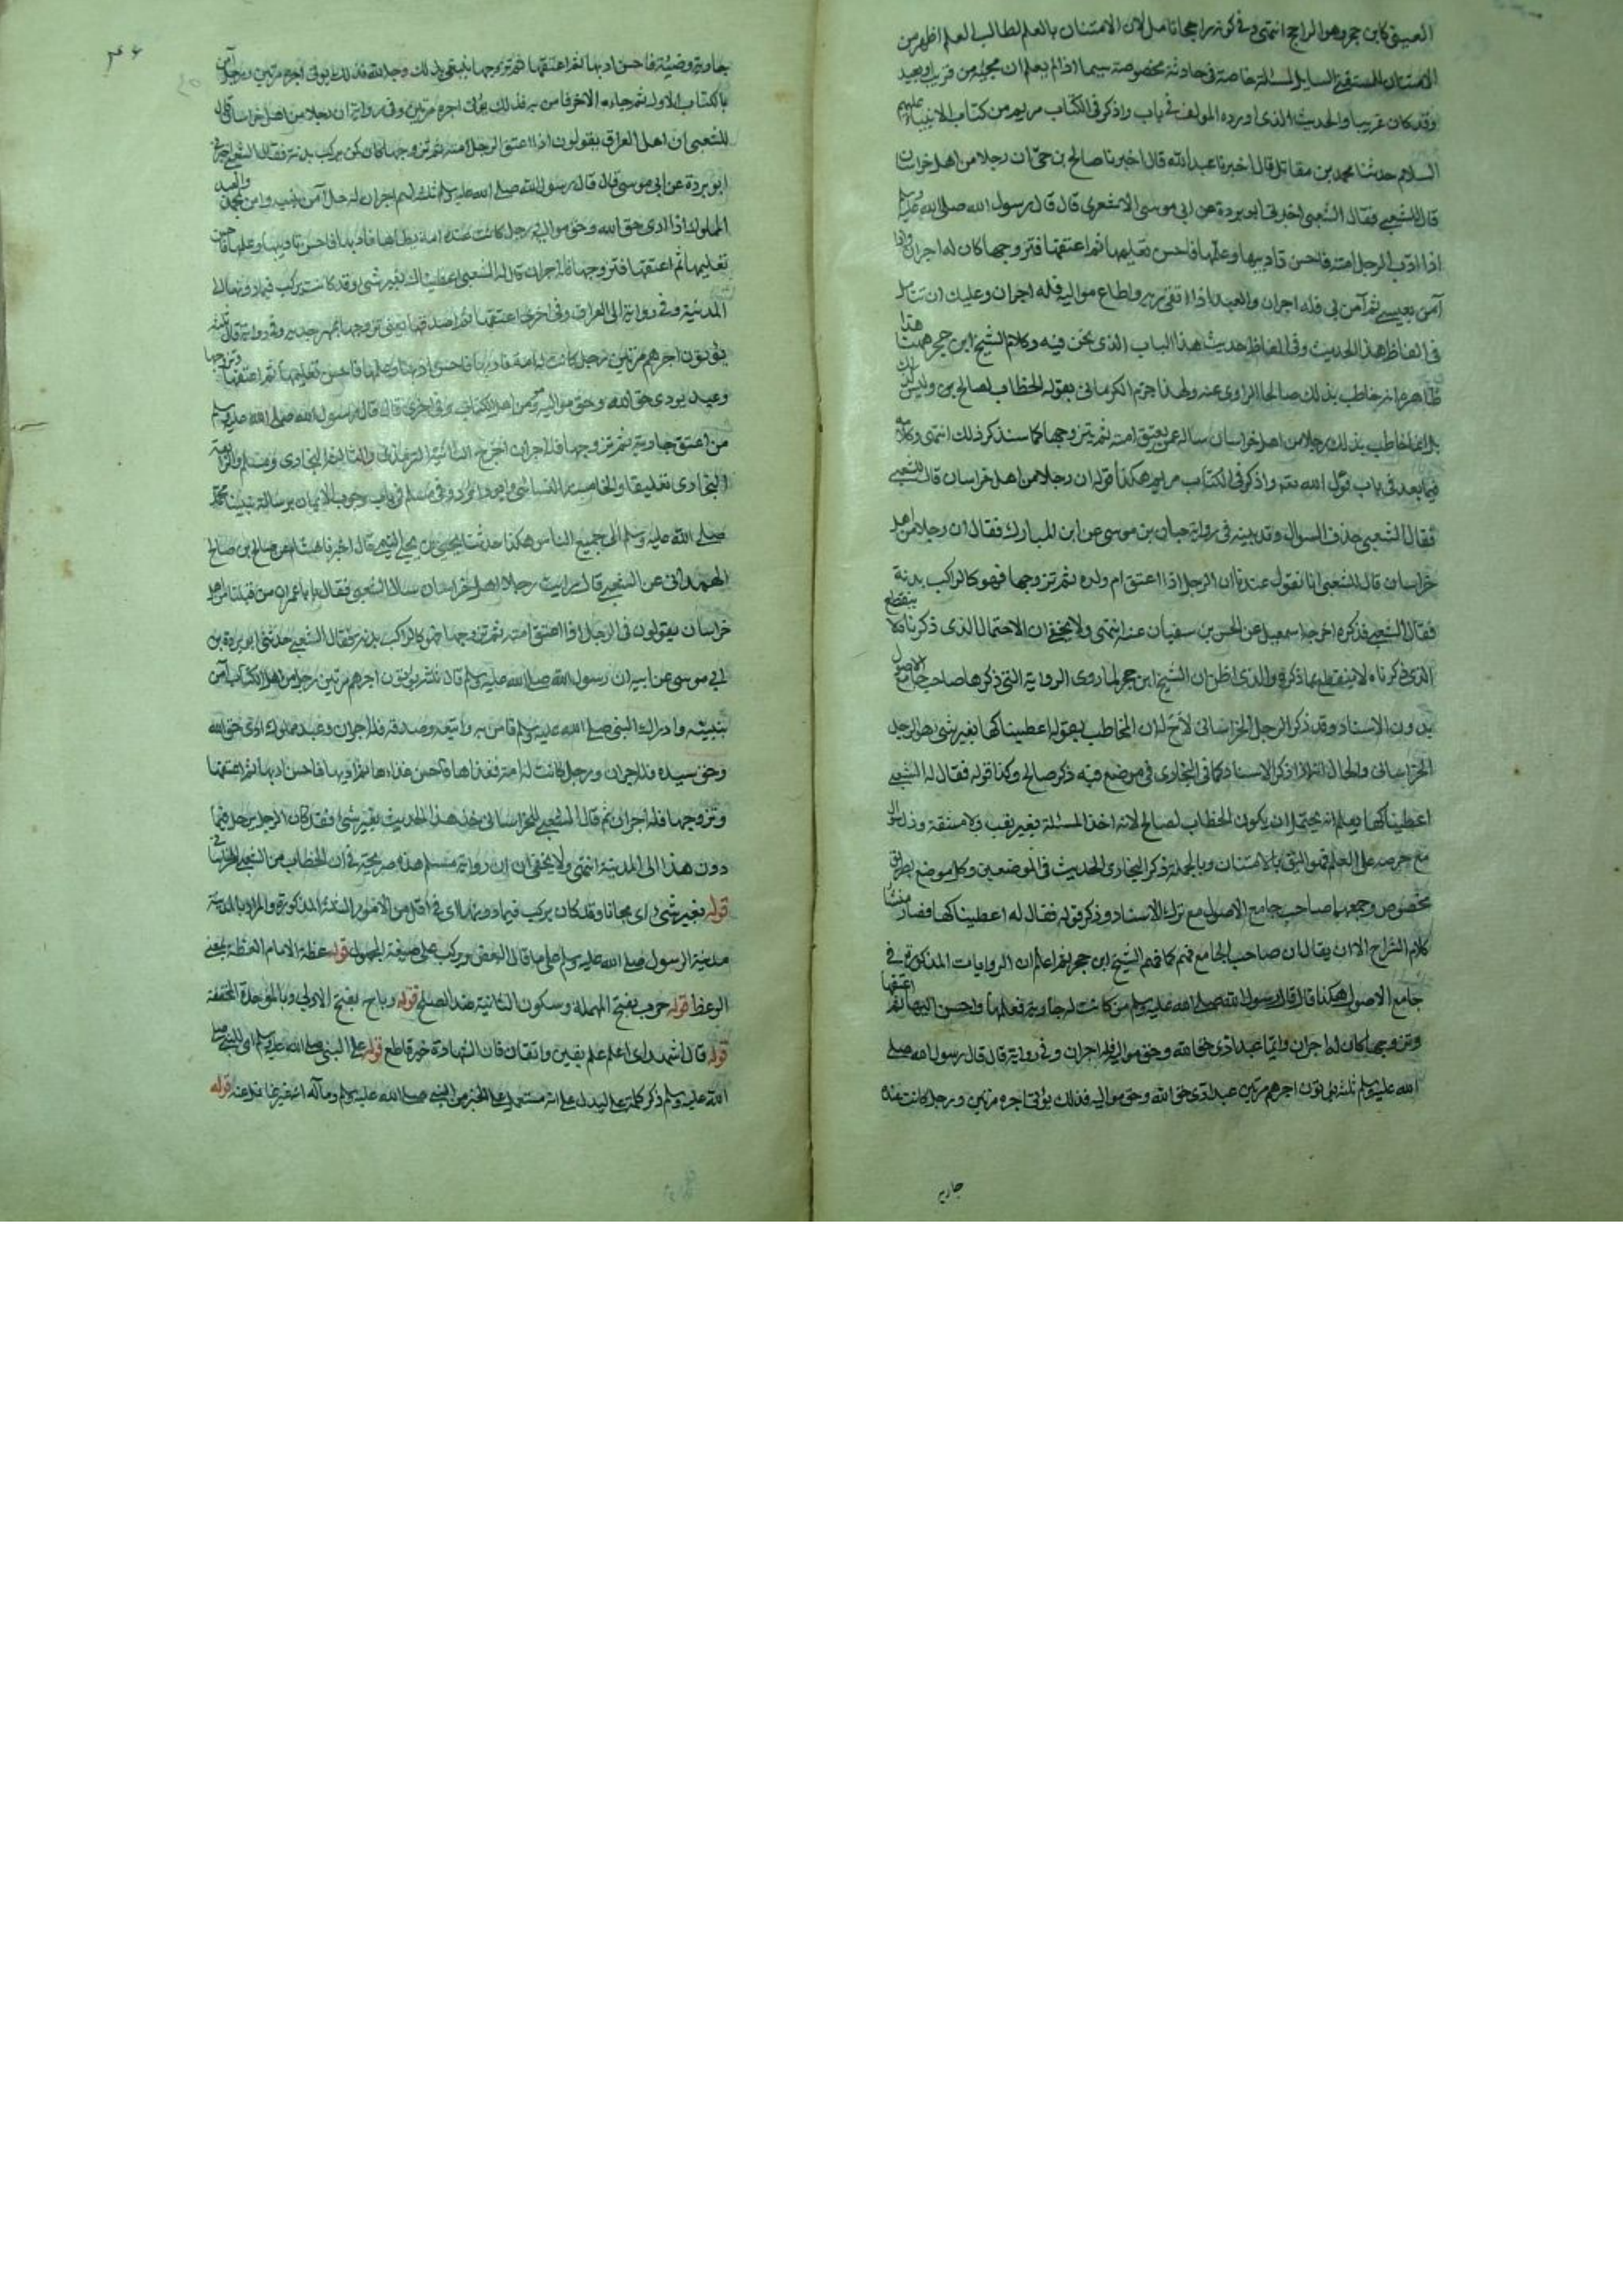 العيني كابن حجر وهو الراجح انتهى وفي كونه راجحا تامل لان الامتنان بالعلم لطالب العلم اظهر من
الامتنان للمستفتي السايل لمسئلة خاصة في حادثة مخصوصة سيما اذا لم يعلم ان مجيئه من قريب او بعيد
وقد كان غريبا والحديث الذي اورده المولف في باب واذكر في الكتاب مريم من كتاب الانبياء عليهم
السلام حدثنا محمد بن مقاتل قال اخبرنا عبد الله قال اخبرنا صالح بن حي ان رجلا من اهل خراسان
قال للشعبي فقال الشعبي اخبرني ابو بردة عن ابي موسى الاشعري قال قال رسول الله صلى الله عليه وسلم
اذا ادب الرجل امته فاحسن تاديبها وعلمها فاحسن تعليمها ثم اعتقها فتزوجها كان له اجران واذا
آمن بعيسى ثم آمن بي فله اجران والعبد اذا اتقى ربه واطاع مواليه فله اجران وعليك ان تتامل
في الفاظ هذا الحديث وفي الفاظ حديث هذا الباب الذي نحن فيه وكلام الشيخ ابن حجر ههنا هذا
ظاهره انه خاطب بذلك صالحا الراوي عنه ولهذا جزم الكرماني بقوله الخطاب لصالح بن وليس كذلك
بل انما خاطب بذلك رجلا من اهل خراسان ساله عمن يعتق امته ثم يتزوجها كما سنذكر ذلك انتهى وكلامه
فيما بعد في باب قول الله تعه واذكر في الكتاب مريم هكذا قوله ان رجلا من اهل خراسان قال للشعبي
فقال الشعبي حذف السوال وقد بينه في رواية حبان بن موسى عن ابن المبارك فقال ان رجلا من اهل
خراسان قال للشعبي انا نقول عندنا ان الرجل اذا اعتق ام ولده ثم تزوجها فهو كالراكب بدنة
فقال الشعبي فذكره اخرجه اسمعيل عن الحسن بن سفيان عنه انتهى ولا يخفى ان الاحتمال الذي ذكرناه لا ينقطع
الذي ذكرناه لا ينقطع بما ذكره والذي اظن ان الشيخ ابن حجر لما روى الرواية التي ذكرها صاحب جامع الاصول
بدون الاسناد وقد ذكر الرجل الخراساني لاح له ان المخاطب بقوله اعطيناكها بغير شي هو الرجل
الخراساني والحال انه اذا ذكر الاسناد كما في البخاري في موضع فيه ذكر صالح وكذا قوله فقال له الشعبي
اعطيناكها يعلم انه يحتمل ان يكون الخطاب لصالح لانه اخذ المسئلة بغير تعب ولا مشقة وذل سوال
مع حرصه على العلم فهو اليق بالامتنان وبالجملة ذكر البخاري الحديث في الموضعين وكل موضع بطريق
مخصوص وجمعهما صاحب جامع الاصول مع ترك الاسناد وذكر قوله فقال له اعطيناكها فصار منشا
كلام الشراح الا ان يقال ان صاحب الجامع فهم كما فهم الشيخ ابن حجر ثم اعلم ان الروايات المذكورة في
جامع الاصول هكذا قال قال رسول الله صلى الله عليه وسلم من كانت له جارية فعلمها واحسن اليها ثم اعتقها
وتزوجها كان له اجران وايما عبد ادى حق الله وحق مواليه فله اجران وفي رواية قال قال رسول الله صلى
الله عليه وسلم ثلثة يؤتون اجرهم مرتين عبد ادى حق الله وحق مواليه فذلك يؤتى اجره مرتين ورجل كانت عنده
جارية
جارية وضيئة فاحسن ادبها ثم اعتقها ثم تزوجها يبتغي بذلك وجه الله فذلك يؤتى اجره مرتين ورجل آمن
بالكتاب الاول ثم جاءه الاخر فامن به فذلك يؤتى اجره مرتين وفي رواية ان رجلا من اهل خراسان قال
للشعبي ان اهل العراق يقولون اذا اعتق الرجل امته ثم تزوجها كان كمن يركب بدنته فقال الشعبي اخبرني
ابو بردة عن ابي موسى قال قال رسول الله صلى الله عليه وسلم ثلثة لهم اجران رجل آمن بنبيه وامن بمحمد والعبد
المملوك اذا ادى حق الله وحق مواليه ورجل كانت عنده امة يطاها فادبها فاحسن تاديبها وعلمها فاحسن
تعليمها ثم اعتقها فتزوجها فله اجران قال له الشعبي اعطيتك بغير شي وقد كانت يركب فيما دونها الى
المدينة وفي رواية الى العراق وفي اخرى اعتقها ثم اصدقها يعني تزوجها بمهر جديد وفي رواية قال ثلثة
يؤتون اجرهم مرتين رجل كانت له امة فادبها فاحسن ادبها وعلمها فاحسن تعليمها ثم اعتقها وتزوجها
وعبد يودي حق الله وحق مواليه ومؤمن اهل الكتاب وفي اخرى قال قال رسول الله صلى الله عليه وسلم
من اعتق جارية ثم تزوجها فله اجران اخرج الثانية الترمذي والثالثة البخاري ومسلم والرابعة
البخاري تعليقا والخامسة النسائي وابو داود وفي مسلم في باب وجوب الايمان برسالة نبينا محمد
صلى الله عليه وسلم الى جميع الناس هكذا حدثنا يحيى بن يحيى قال اخبرنا هشيم عن صالح بن صالح
الهمداني عن الشعبي قال رايت رجلا من اهل خراسان سال الشعبي فقال يا باعمرو ان من قبلنا من اهل
خراسان يقولون في الرجل اذا اعتق امته ثم تزوجها فهو كالراكب بدنته فقال الشعبي حدثني ابو بردة بن
ابي موسى عن ابيه ان رسول الله صلى الله عليه وسلم قال ثلثة يؤتون اجرهم مرتين رجل من اهل الكتاب آمن
بنبيه وادرك النبي صلى الله عليه وسلم فامن به واتبعه وصدقه فله اجران وعبد مملوك ادى حق الله
وحق سيده فله اجران ورجل كانت له امة فغذاها فاحسن غذاءها ثم ادبها فاحسن ادبها ثم اعتقها
وتزوجها فله اجران ثم قال الشعبي للخراساني خذ هذا الحديث بغير شي فقد كان الرجل يرحل فيما
دون هذا الى المدينة انتهى ولا يخفى ان رواية مسلم هذه صريحة في ان الخطاب من الشعبي للخراساني
قوله بغير شي اي مجانا وقد كان يركب فيما دونها اي في اقل من الامور الثلثة المذكورة والمراد بالمدينة
مدينة الرسول صلى الله عليه وسلم على ما قال البعض ويركب على صيغة المجهول قوله عظة الامام العظة بمعنى
الوعظ قوله حرب بفتح المهملة وسكون الثانية ضد الصلح قوله رباح بفتح الاولى وبالموحدة المخففة
قوله قال اشهد اي اعلم علم يقين واتقان فان الشهادة خبر قاطع قوله على النبي صلى الله عليه وسلم اي للنبي صلى
الله عليه وسلم ذكر كلمة على ليدل على انه مستعمل على الخبر من النبي صلى الله عليه وسلم ومآله قوله